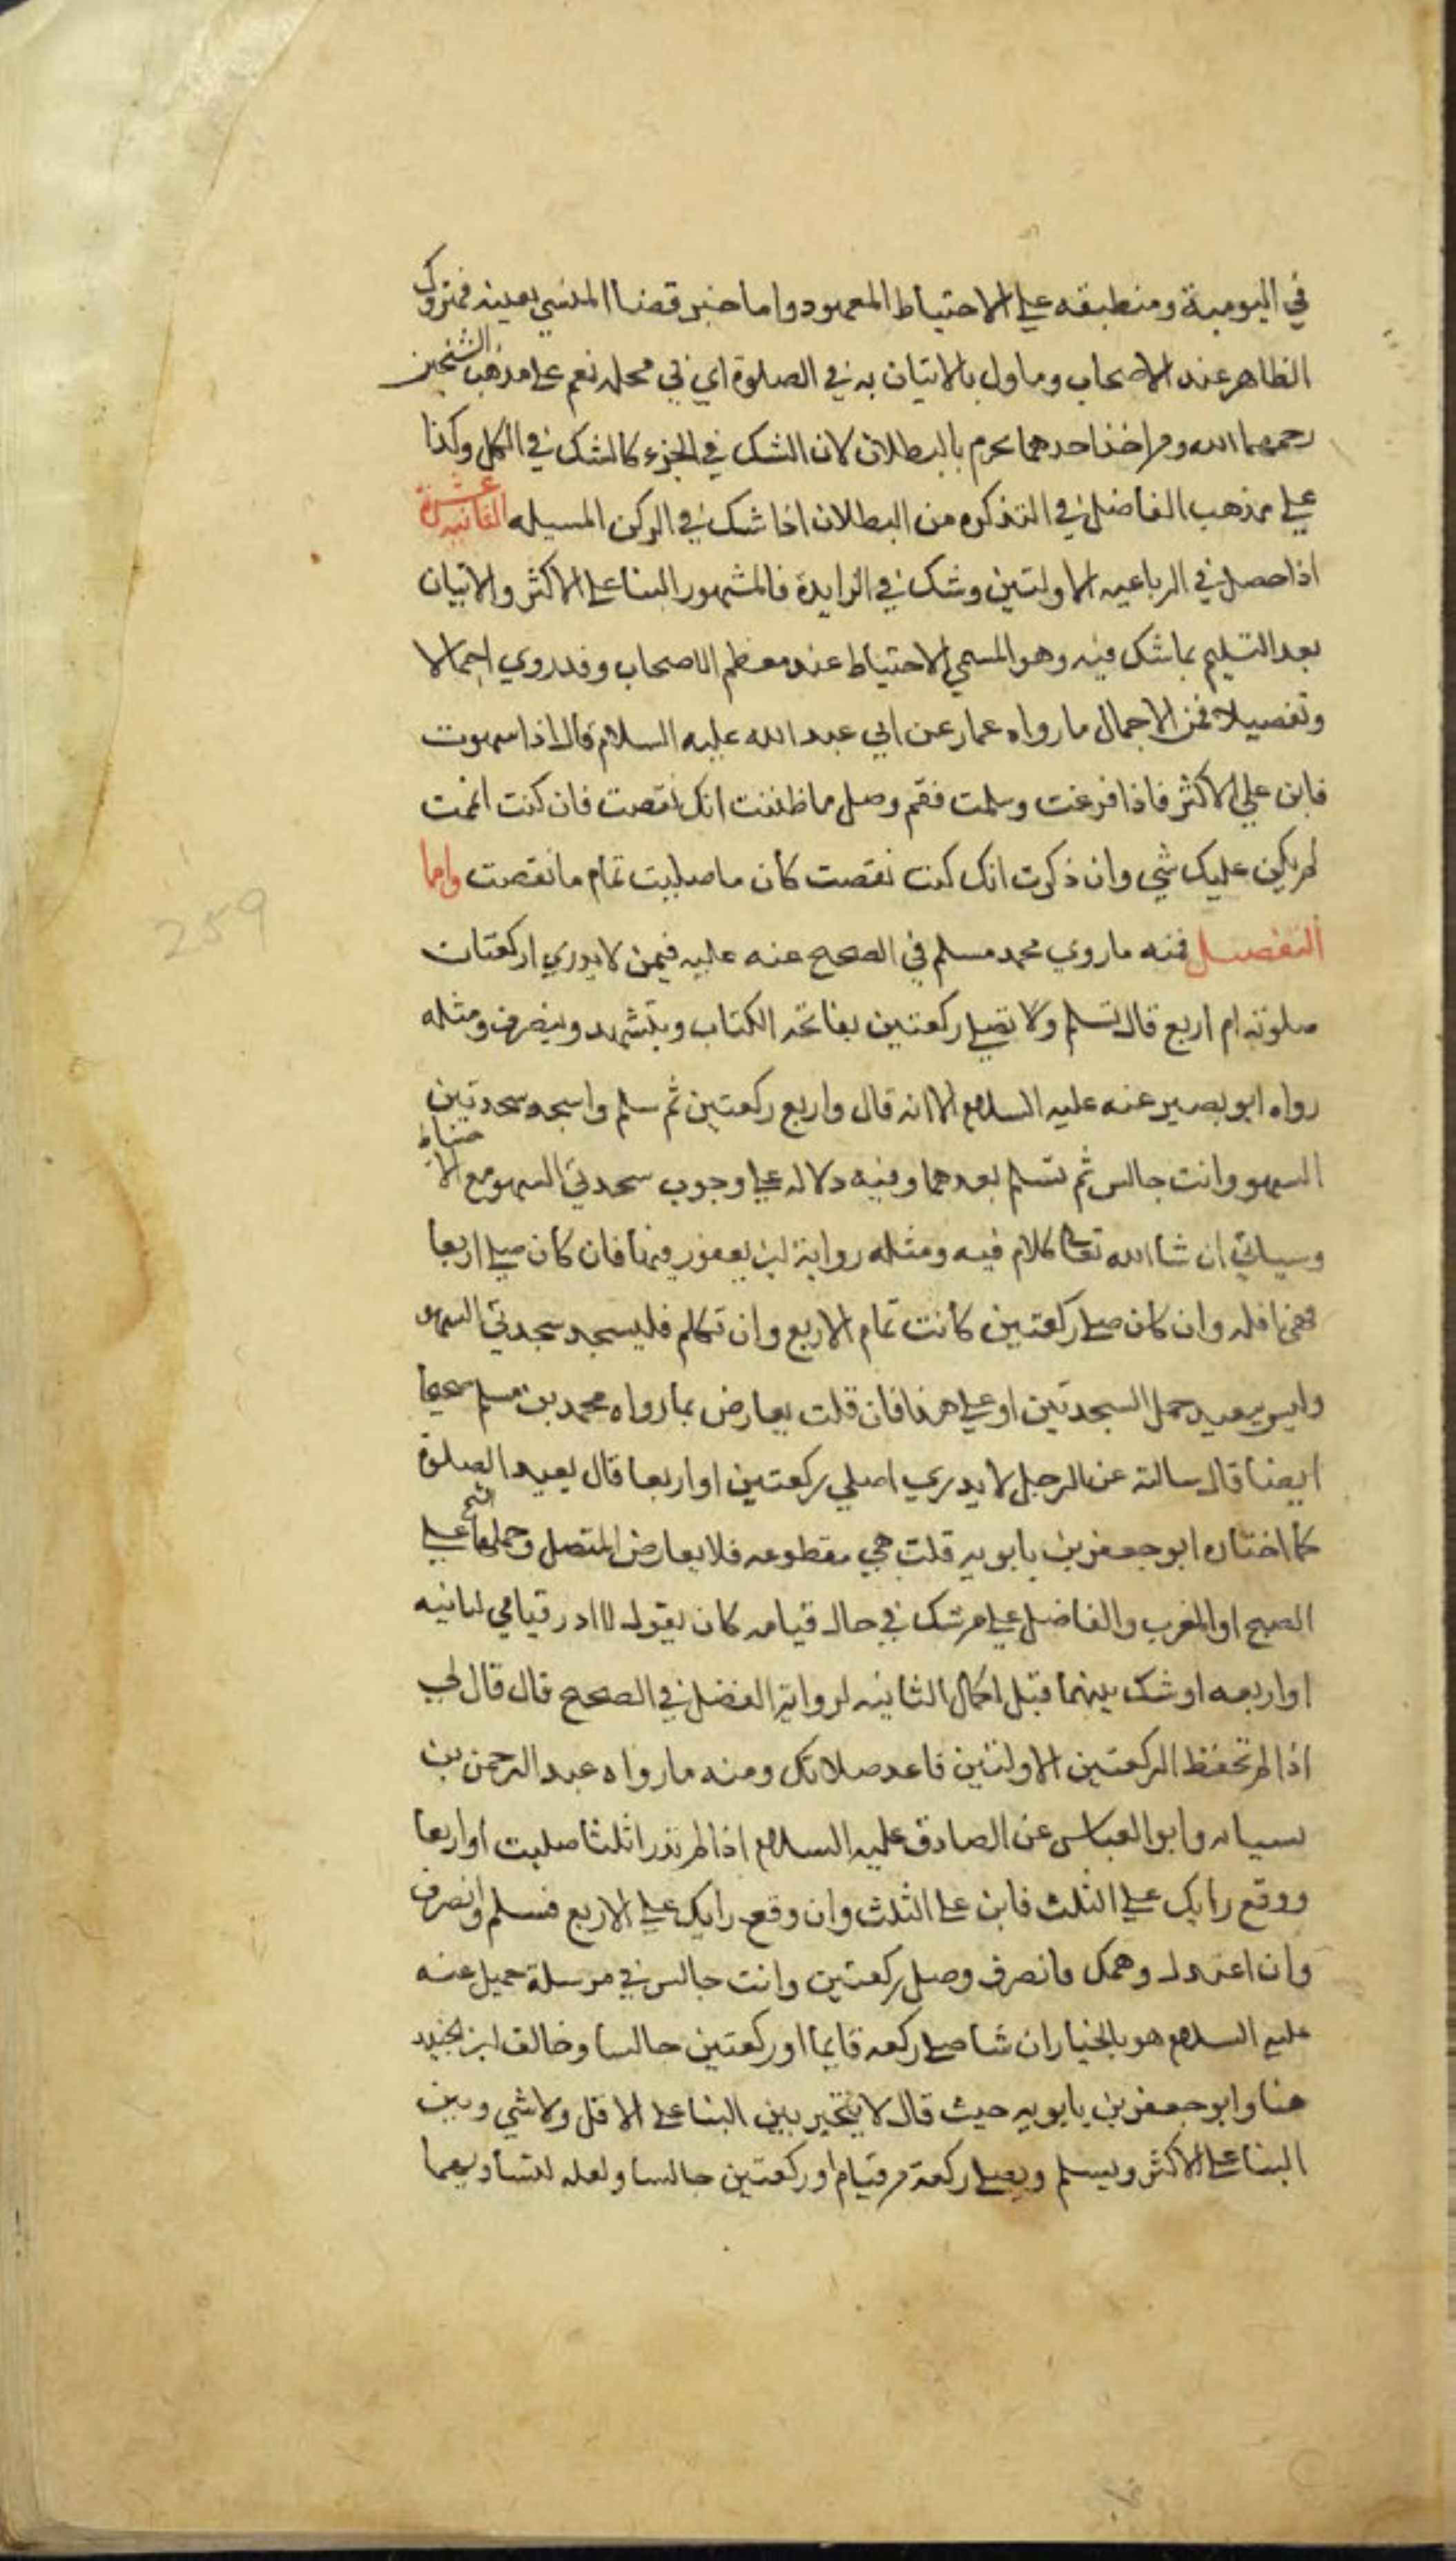 في اليومية ومنطبقه علي الاحتياط المعهود واما خبر قضا المنسي بعينه فمتروك
الظاهر عند الاصحاب وماول بالاتيان به في الصلوة اي في محله نعم علي مذهب الشيخين
رحمهما الله ومن اخذ احدهما يحرم بالبطلان لان الشك في الجزء كالشك في الكل وكذا
علي مذهب الفاضل في التذكره من البطلان اذا شك في الركن المسيله الثانيه عشرة
اذا حصل في الرباعيه الاولتين وشك في الزايدة فالمشهور البنا علي الاكثر والاتيان
بعد التسليم بما شك فيه وهو المسمي الاحتياط عند معظم الاصحاب وقد روي اجمالا
وتفصيلا فمن الاجمال ما رواه عمار عن ابي عبد الله عليه السلام قال اذا سهوت
فابن علي الاكثر فاذا فرغت وسلمت فقم وصل ما ظننت انك نقصت فان كنت اتممت
لم يكن عليك شي وان ذكرت انك كنت نقصت كان ما صليت تمام ما نقصت واما
التفصيل فمنه ما روي محمد مسلم في الصحيح عنه عليه فيمن لا يدري اركعتان
صلوته ام اربع قال تسلم ولا تصلي ركعتين بفاتحه الكتاب ويتشهد وينصرف ومثله
رواه ابو بصير عنه عليه السلام الا انه قال واربع ركعتين ثم سلم واسجد سجدتين
السهو وانت جالس ثم تسلم بعدهما وفيه دلاله علي وجوب سجدتي السهو مع الاحتياط
وسياتي ان شا الله تعالي كلام فيه ومثله رواية ابن يعفور فيها فان كان صلي اربعا
فهي نافله وان كان صلي ركعتين كانت تمام الاربع وان تكلم فليسجد سجدتي السهو
وليس ببعيد حمل السجدتين او علي هذا فان قلت يعارض بما رواه محمد بن مسلم صحيحا
ايضا قال سالته عن الرجل لا يدري اصلي ركعتين او اربعا قال يعيد الصلوة
كما اختاره ابو جعفر بن بابويه قلت هي مقطوعه فلا يعارض المتصل وحملها الشيخ علي
الصبح او المغرب والفاضل علي من شك في حال قيامه كان يقول لا ادر قيامي لثانيه
او اربعه او شك بينهما قبل اكمال الثانيه لرواية الفضل في الصحيح قال قال لي
اذا لم تحفظ الركعتين الاولتين فاعد صلاتك ومنه ما رواه عبد الرحمن بن
سيابه وابو العباس عن الصادق عليه السلام اذا لم تدر اثلثا صليت او اربعا
ووقع رايك علي الثلث فابن علي الثلث وان وقع رايك علي الاربع فسلم وانصرف
وان اعتدل وهمك فانصرف وصل ركعتين وانت جالس في مرسلة جميل عنه
عليه السلام هو بالخيار ان شا صلي ركعه قايما او ركعتين جالسا وخالف ابن الجنيد
هنا وابو جعفر بن بابويه حيث قال لا يتخير بين البنا علي الاقل ولا شي وبين
البنا علي الاكثر ويسلم ويصلي ركعة من قيام او ركعتين جالسا ولعله لتساويهما
259